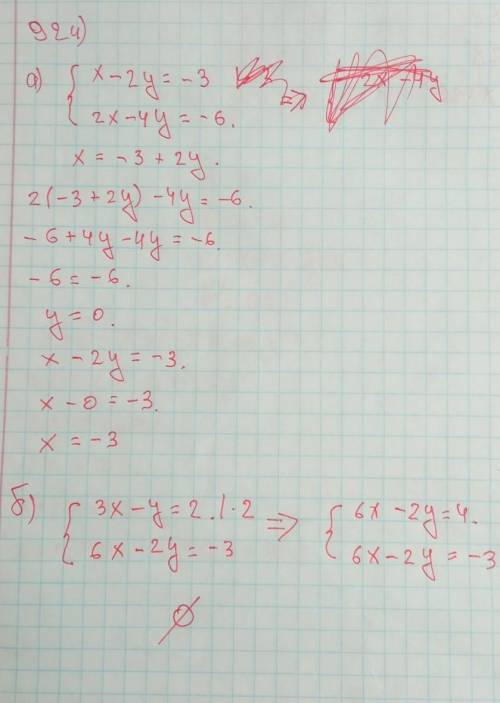 924)
а) { x - 2y = -3 =>
2x - 4y = -6.
x = -3 + 2y.
2(-3 + 2y) - 4y = -6.
-6 + 4y - 4y = -6.
-6 = -6.
y = 0.
x - 2y = -3.
x - 0 = -3.
x = -3
б) { 3x - y = 2. | · 2 => { 6x - 2y = 4.
6x - 2y = -3 6x - 2y = -3
∅